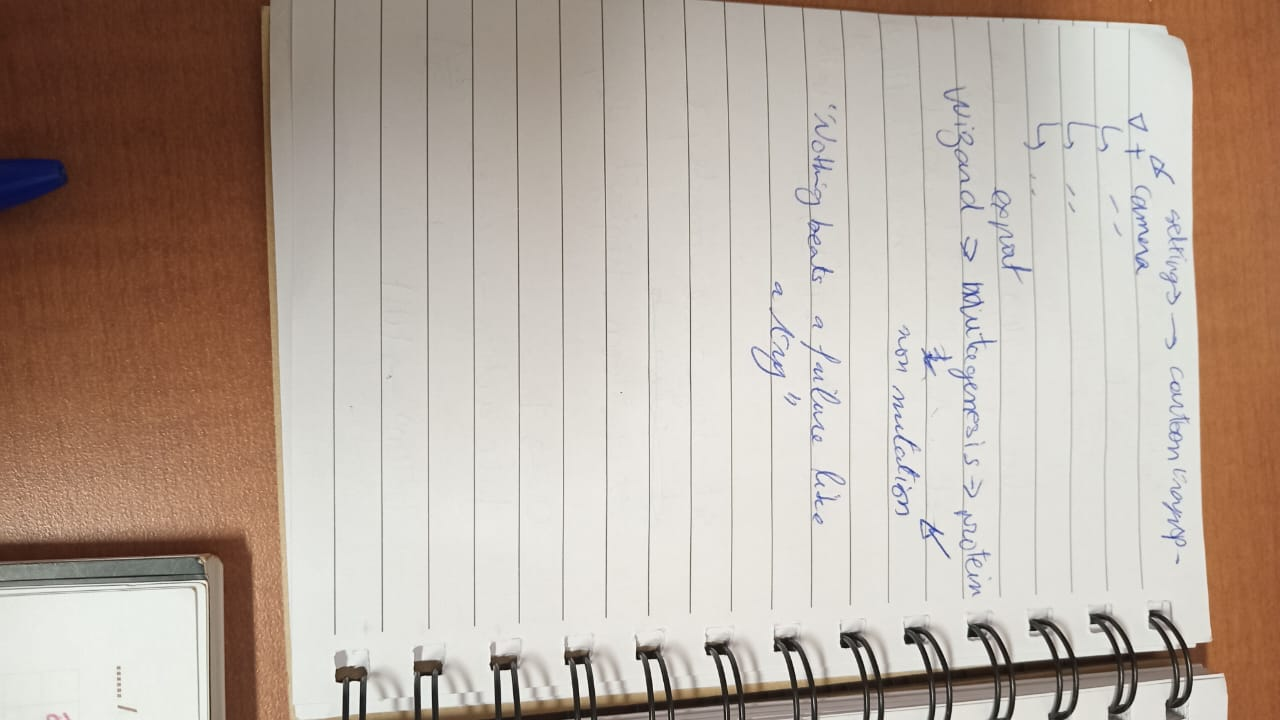 settings → carbon
∇ + α camera
↳ ,,
↳ ,,
↳ ,,
export
Wizard → Mutagenesis → protein
non mutation
"Nothing beats a failure like
a try"